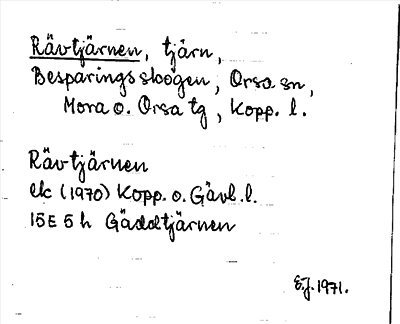 Rävtjärnen, tjärn,
Besparingsskogen, Orsa sn,
Mora o. Orsa tg, Kopp. l.
Rävtjärnen
ek (1970) Kopp. o. Gävl. l.
15E 5h Gäddtjärnen
E.J. 1971.